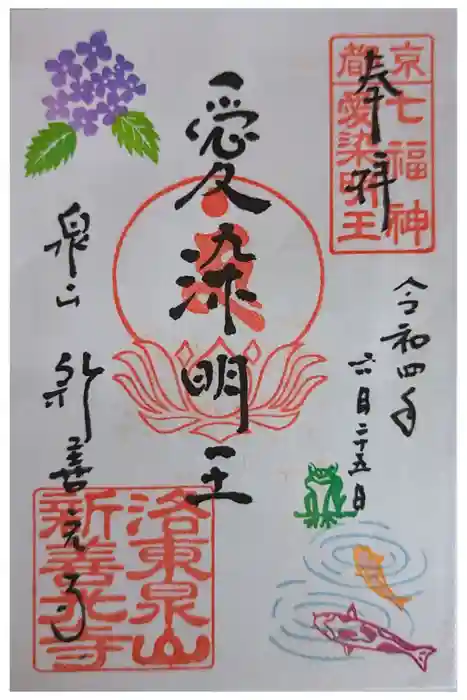 奉拝
京七福神
都愛染明王
令和四年
六月二十五日
愛染明王
泉山 新善光寺
洛東泉山
新善光寺